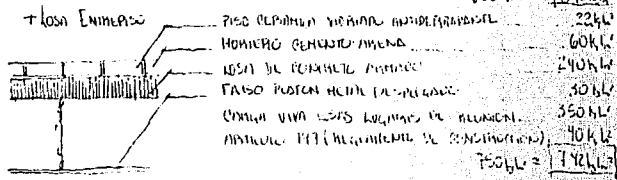 + LOSA ENTREPISO
PISO CERAMICA VITRIFIC. ANTIDERRAPANTE 22 k/m²
MORTERO CEMENTO-ARENA 60 k/m²
LOSA DE CONCRETO ARMADO 240 k/m²
FALSO PLAFON METAL DESPLEGADO 30 k/m²
CARGA VIVA LUGARES DE REUNION 350 k/m²
ARTICULO 197 (REGLAMENTO DE CONSTRUCCION) 40 k/m²
750 k/m² = 742 k/m²